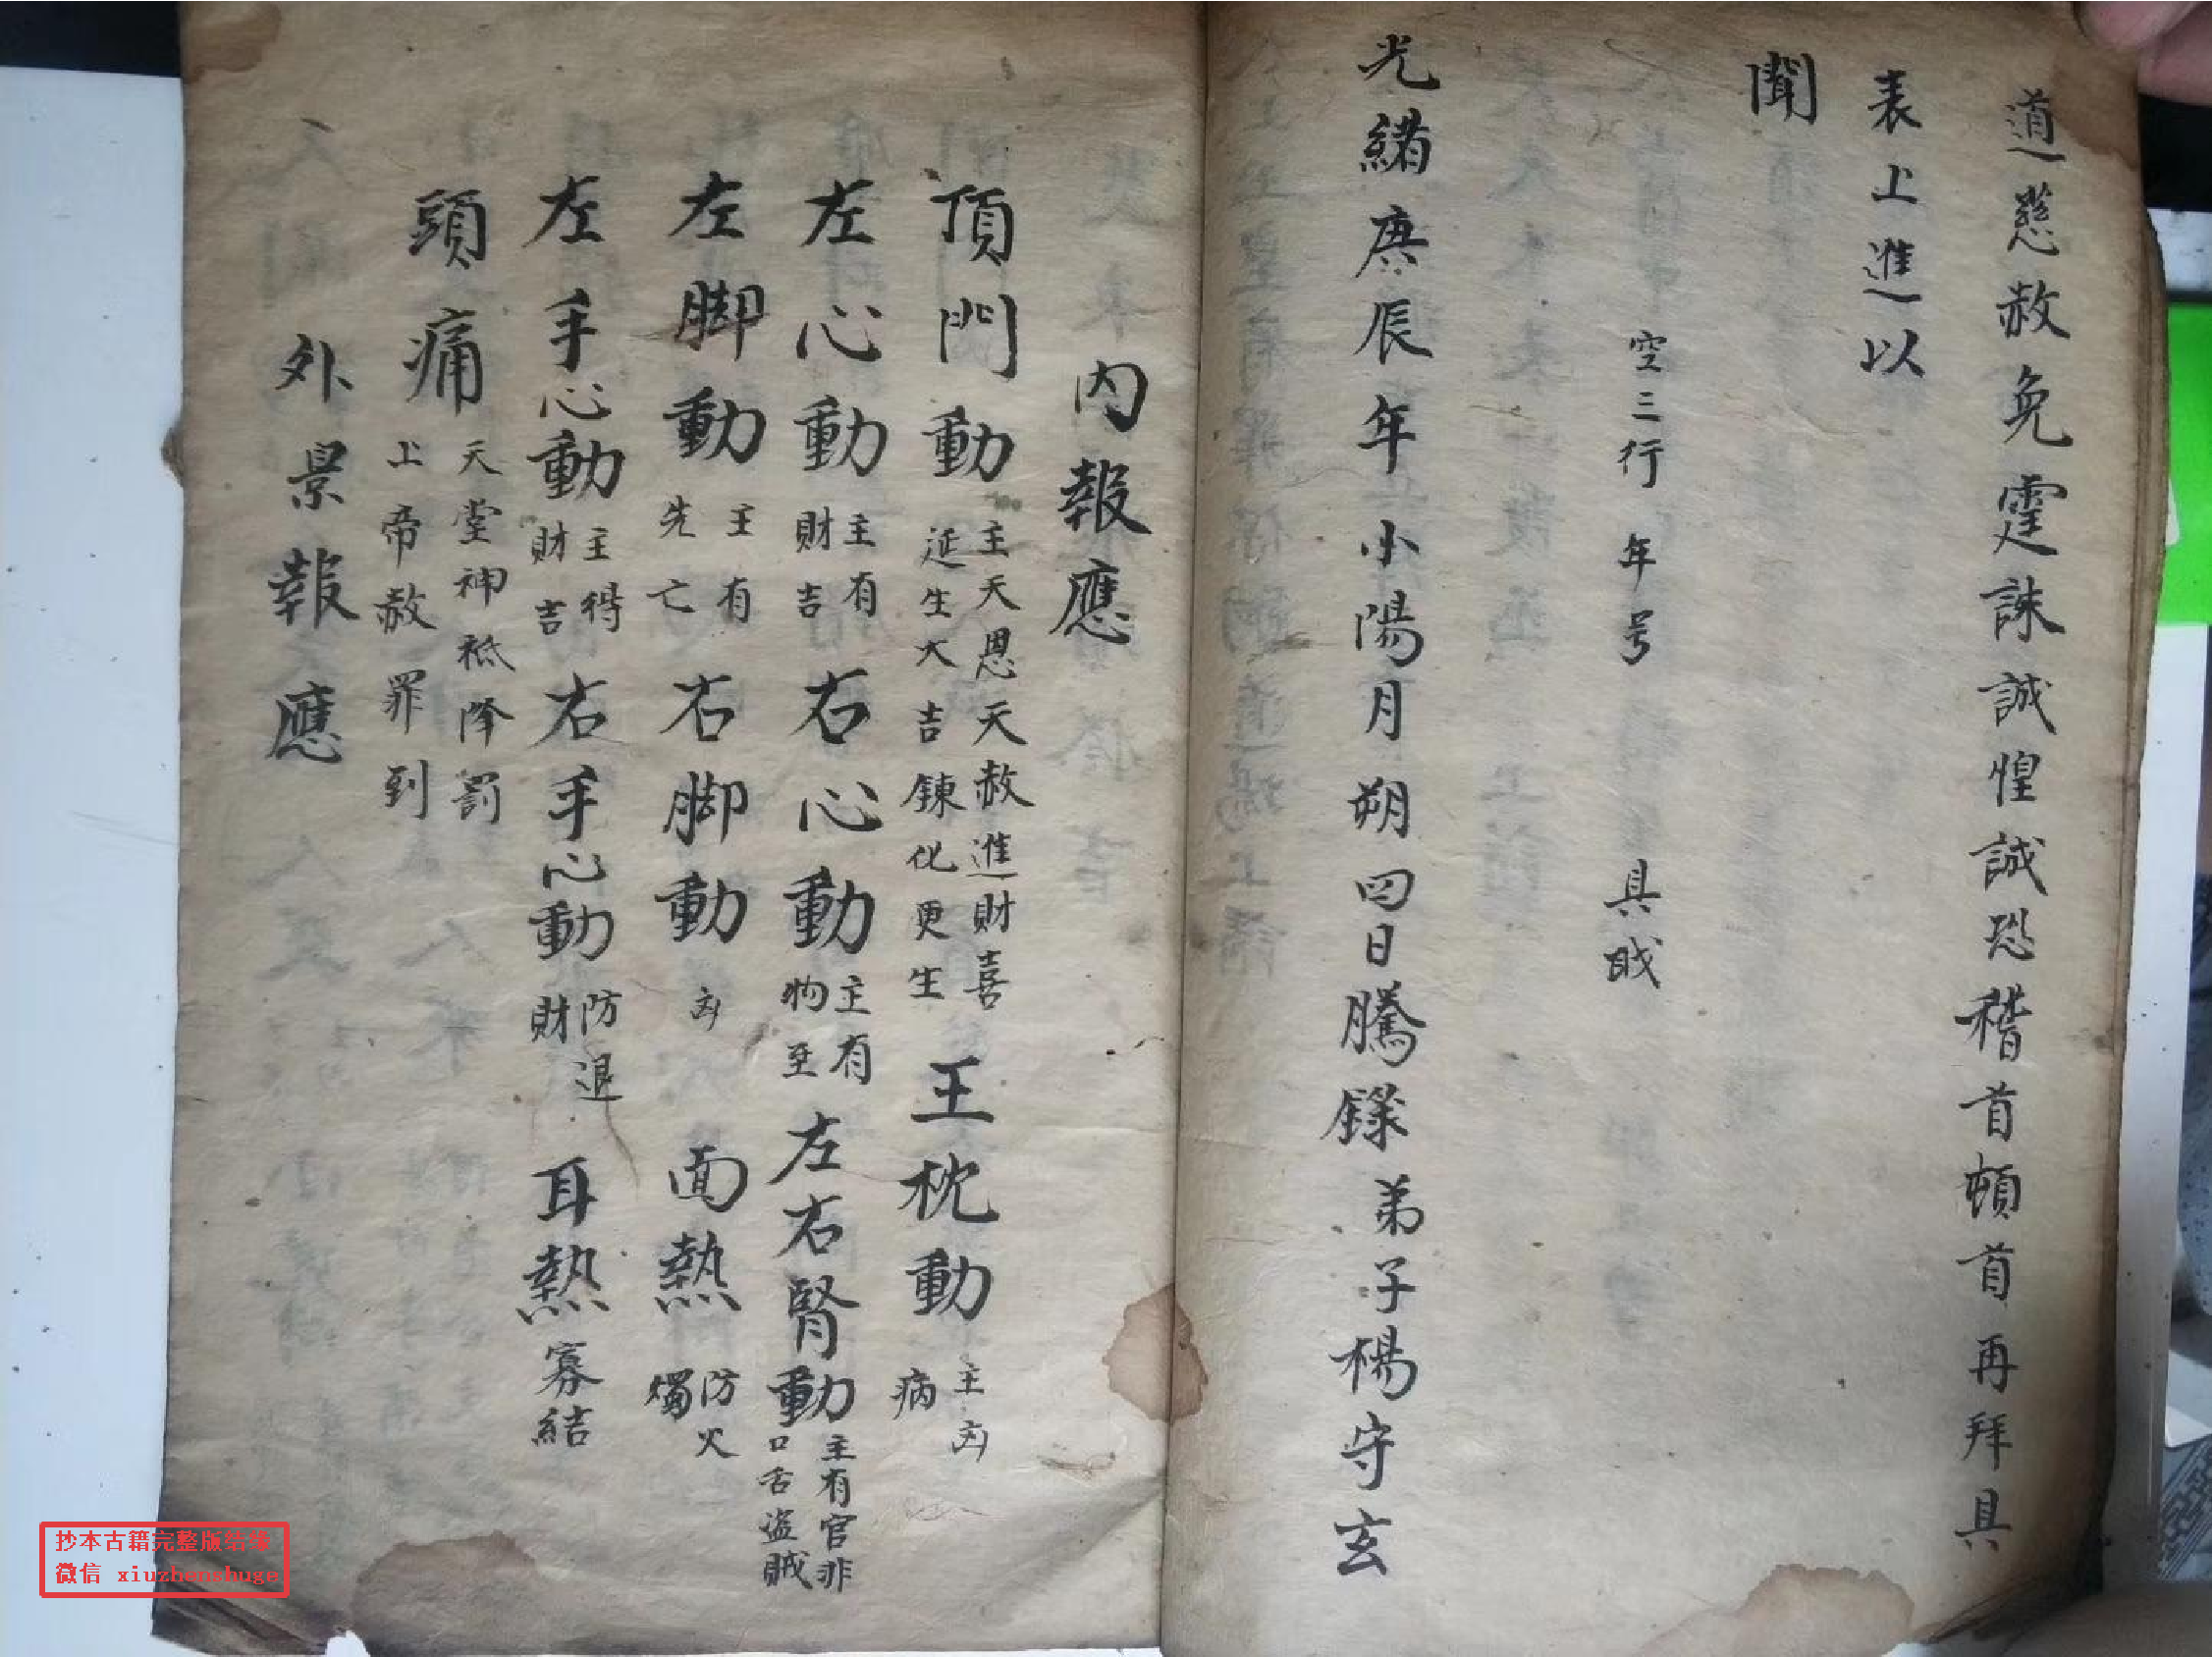 道慈赦免霆誅誠惶誠恐稽首頓首再拜具
表上進以
聞
空三行 年号 具
光緒庚辰年小陽月朔四日騰錄弟子楊守玄
內報應
頂門動主天恩天赦進財喜延生大吉鍊化更生 王枕動主凶病
左心動主有財吉 右心動主有物至 左右腎動主有官非口舌盜賊
左脚動主有先亡 右脚動凶 面熱防火燭
左手心動主得財吉 右手心動防退財 耳熱寡結
頭痛天堂神祇降罰上帝赦罪到
外景報應
抄本古籍完整版结缘
微信 xiuzhenshuge